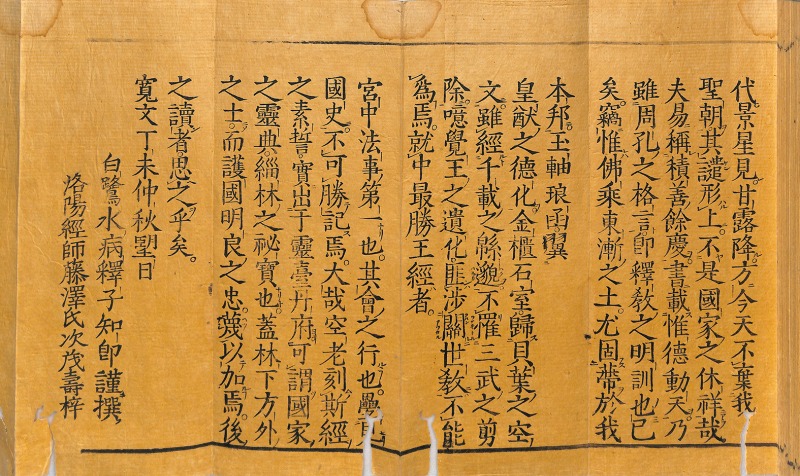 代景星見。甘露降。方今天不棄我
聖朝其譴形上。不是國家之休祥哉
夫易稱積善餘慶。書載惟德動天。乃
雖周孔之格言。卽釋敎之明訓也已
矣。竊惟佛乘東漸之土。尤固帶於我
本邦。玉軸琅函翼
皇猷之德化。金櫃石室。歸貝葉之空
文。雖經千載之緜邈。不罹三武之剪
除。噫覺王之遺化。匪涉關世敎不能
爲焉。就中最勝王經者。
宮中法事第一也。其會之行也。疊
國史。不可勝記焉。大哉空老刻斯經
之素誓。實出于靈臺丹府。可謂國家
之靈典。緇林之祕寶也。蓋林下方外
之士。而護國明良之忠。蔑以加焉。後
之讀者思之乎矣。
寬文丁未仲秋朢日
白鷺水病釋子知卽謹撰
洛陽經師藤澤氏次茂壽梓